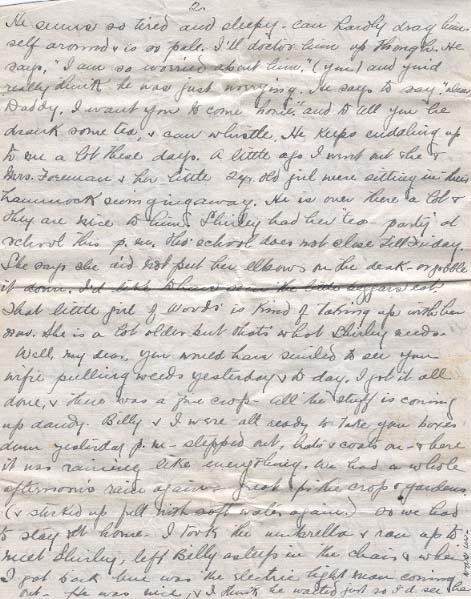 2.
He seems so tired and sleepy - can hardly drag him-
self around & is so pale. I'll doctor him up though. He
says, "I am so worried about him." (you) and you'd
really think he was just worrying. He says to say "Dear
Daddy. I want you to come home" and to tell you he
drank some tea, & can whistle. He keeps cuddling up
to me a lot these days. A little ago I went out & he &
Mrs. Foreman & her little 2 yr. old girl were sitting in their
hammock swinging away. He is over there a lot &
they are nice to him. Shirley had her "tea party" at
school this p.m. tho' school does not close till Friday.
She says she did not put her elbows on the desk - or gobble
it down. I'd like to have seen the little beggars eat.
That little girl of Woods' is kind of taking up with her
now. She is a lot older but that's what Shirley needs.
Well, my dear, you would have smiled to see your
wife pulling weeds yesterday & to day. I got it all
done, & there was a fine crop - all the stuff is coming
up dandy. Billy & I were all ready to take your boxes
down yesterday p.m. - stepped out, hats & coats on - & here
it was raining like everything. We had a whole
afternoon's rain again - great for the crop & gardens
(& filled with soft water again) so we had
to stay at home. I took the umbrella & ran up to
meet Shirley, left Billy asleep in the chair & when
I got back here was the electric light man coming
out - He was nice, & I think he waited just so I'd see he